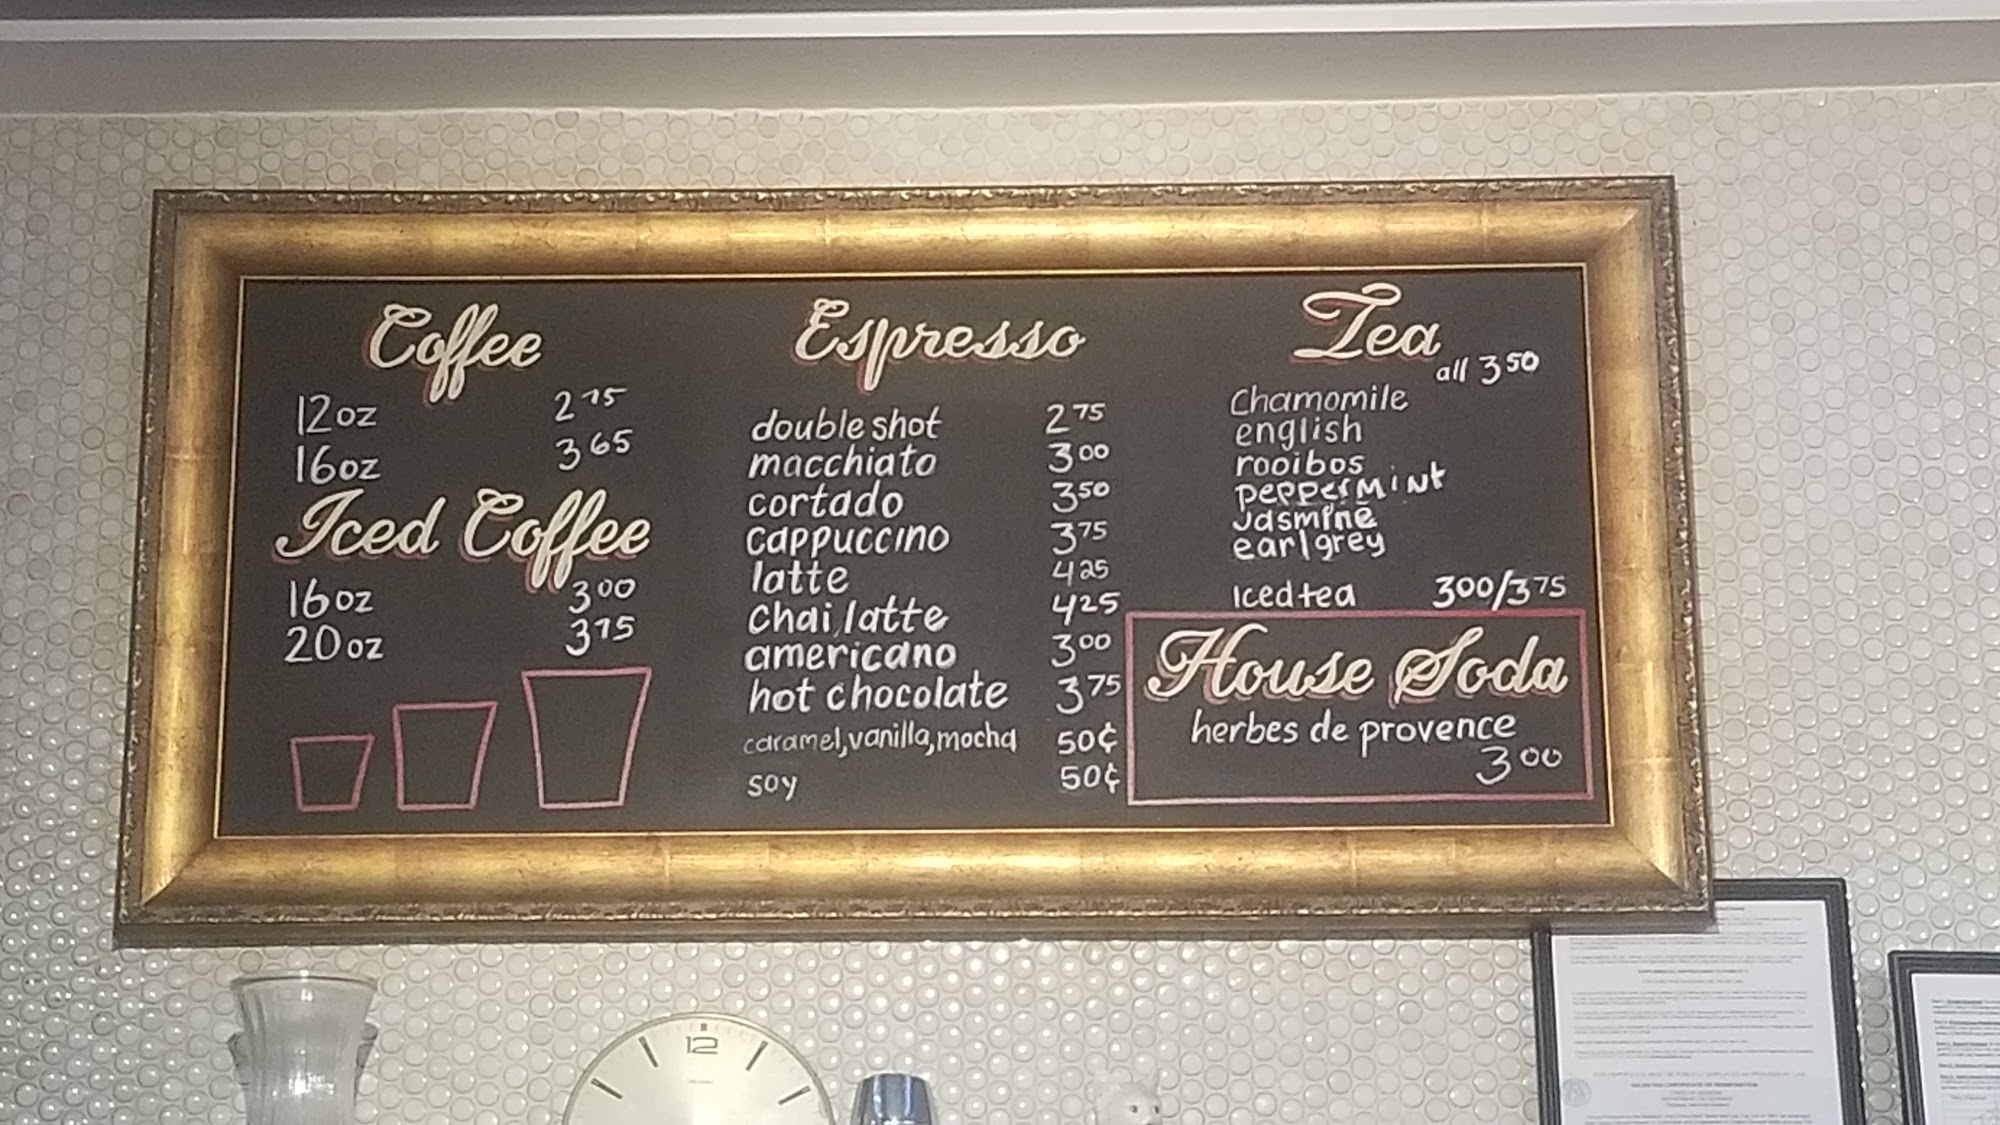 Coffee
12oz 2 75
16oz 3 65
Iced Coffee
16oz 3 00
20oz 3 75
Espresso
double shot 2 75
macchiato 3 00
cortado 3 50
cappuccino 3 75
latte 4 25
chai latte 4 25
americano 3 00
hot chocolate 3 75
caramel, vanilla, mocha 50¢
soy 50¢
Tea
all 3 50
Chamomile
english
rooibos
peppermint
Jasmine
earl grey
Iced tea 3 00/3 75
House Soda
herbes de provence
3 00
12